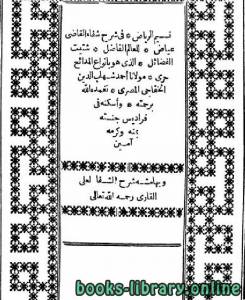 نسيم الرياض * فى شرح شفاء القاضى
عياض * للعالم الفاضل * شتيت
الفضائل * الذى هو بانواع المدائح
حرى * مولانا أحمد شهاب الدين
الخفاجى المصرى * تغمده الله
برحمته * وأسكنه فى
فراديس جنته
بمنه وكرمه
آمين
وبهامشه شرح الشفا لعلى
القارى رحمه الله تعالى
books-library.online